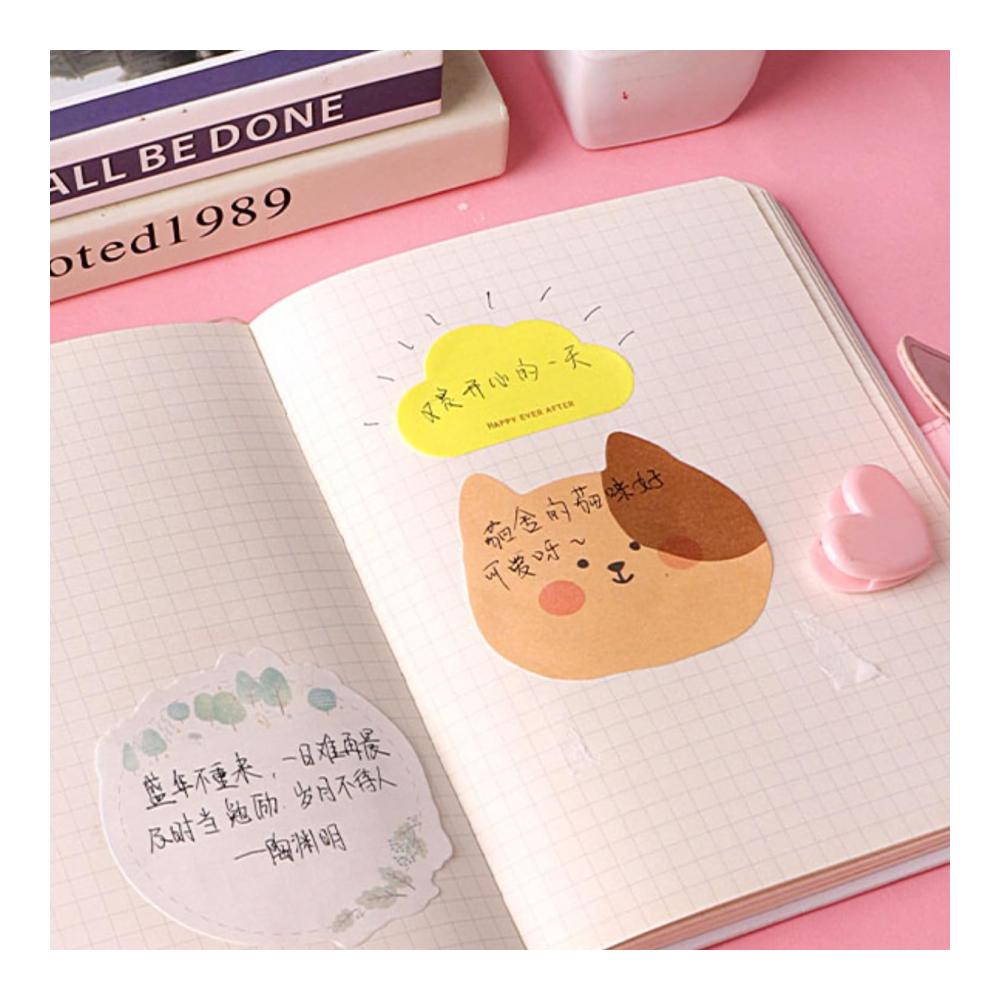 ALL BE DONE
oted1989
又是开心的一天
HAPPY EVER AFTER
猫舍的猫咪好
可爱呀~
盛年不重来，一日难再晨
及时当勉励.岁月不待人
—陶渊明